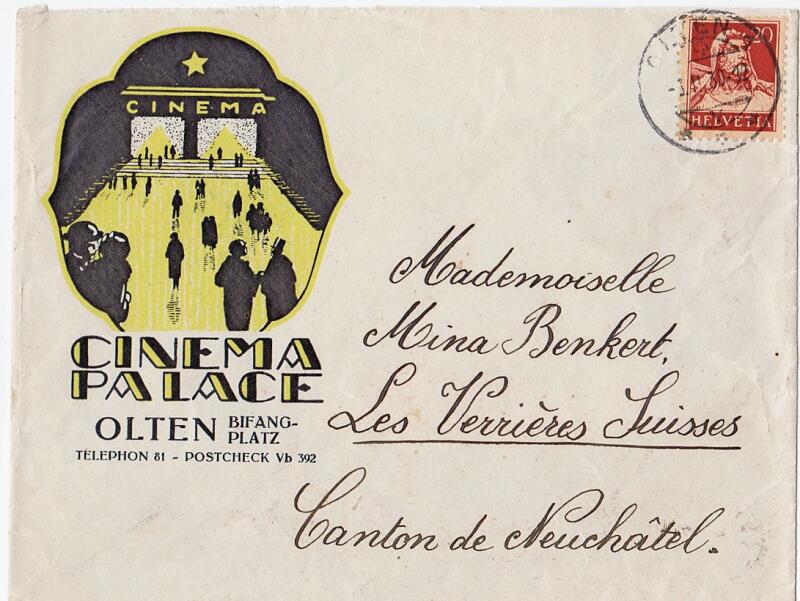 CINEMA
CINEMA
PALACE
OLTEN BIFANG-
PLATZ
TELEPHON 81 - POSTCHECK Vb 392
OLTEN 1
20
HELVETIA
Mademoiselle
Mina Benkert,
Les Verrières Suisses
Canton de Neuchâtel.